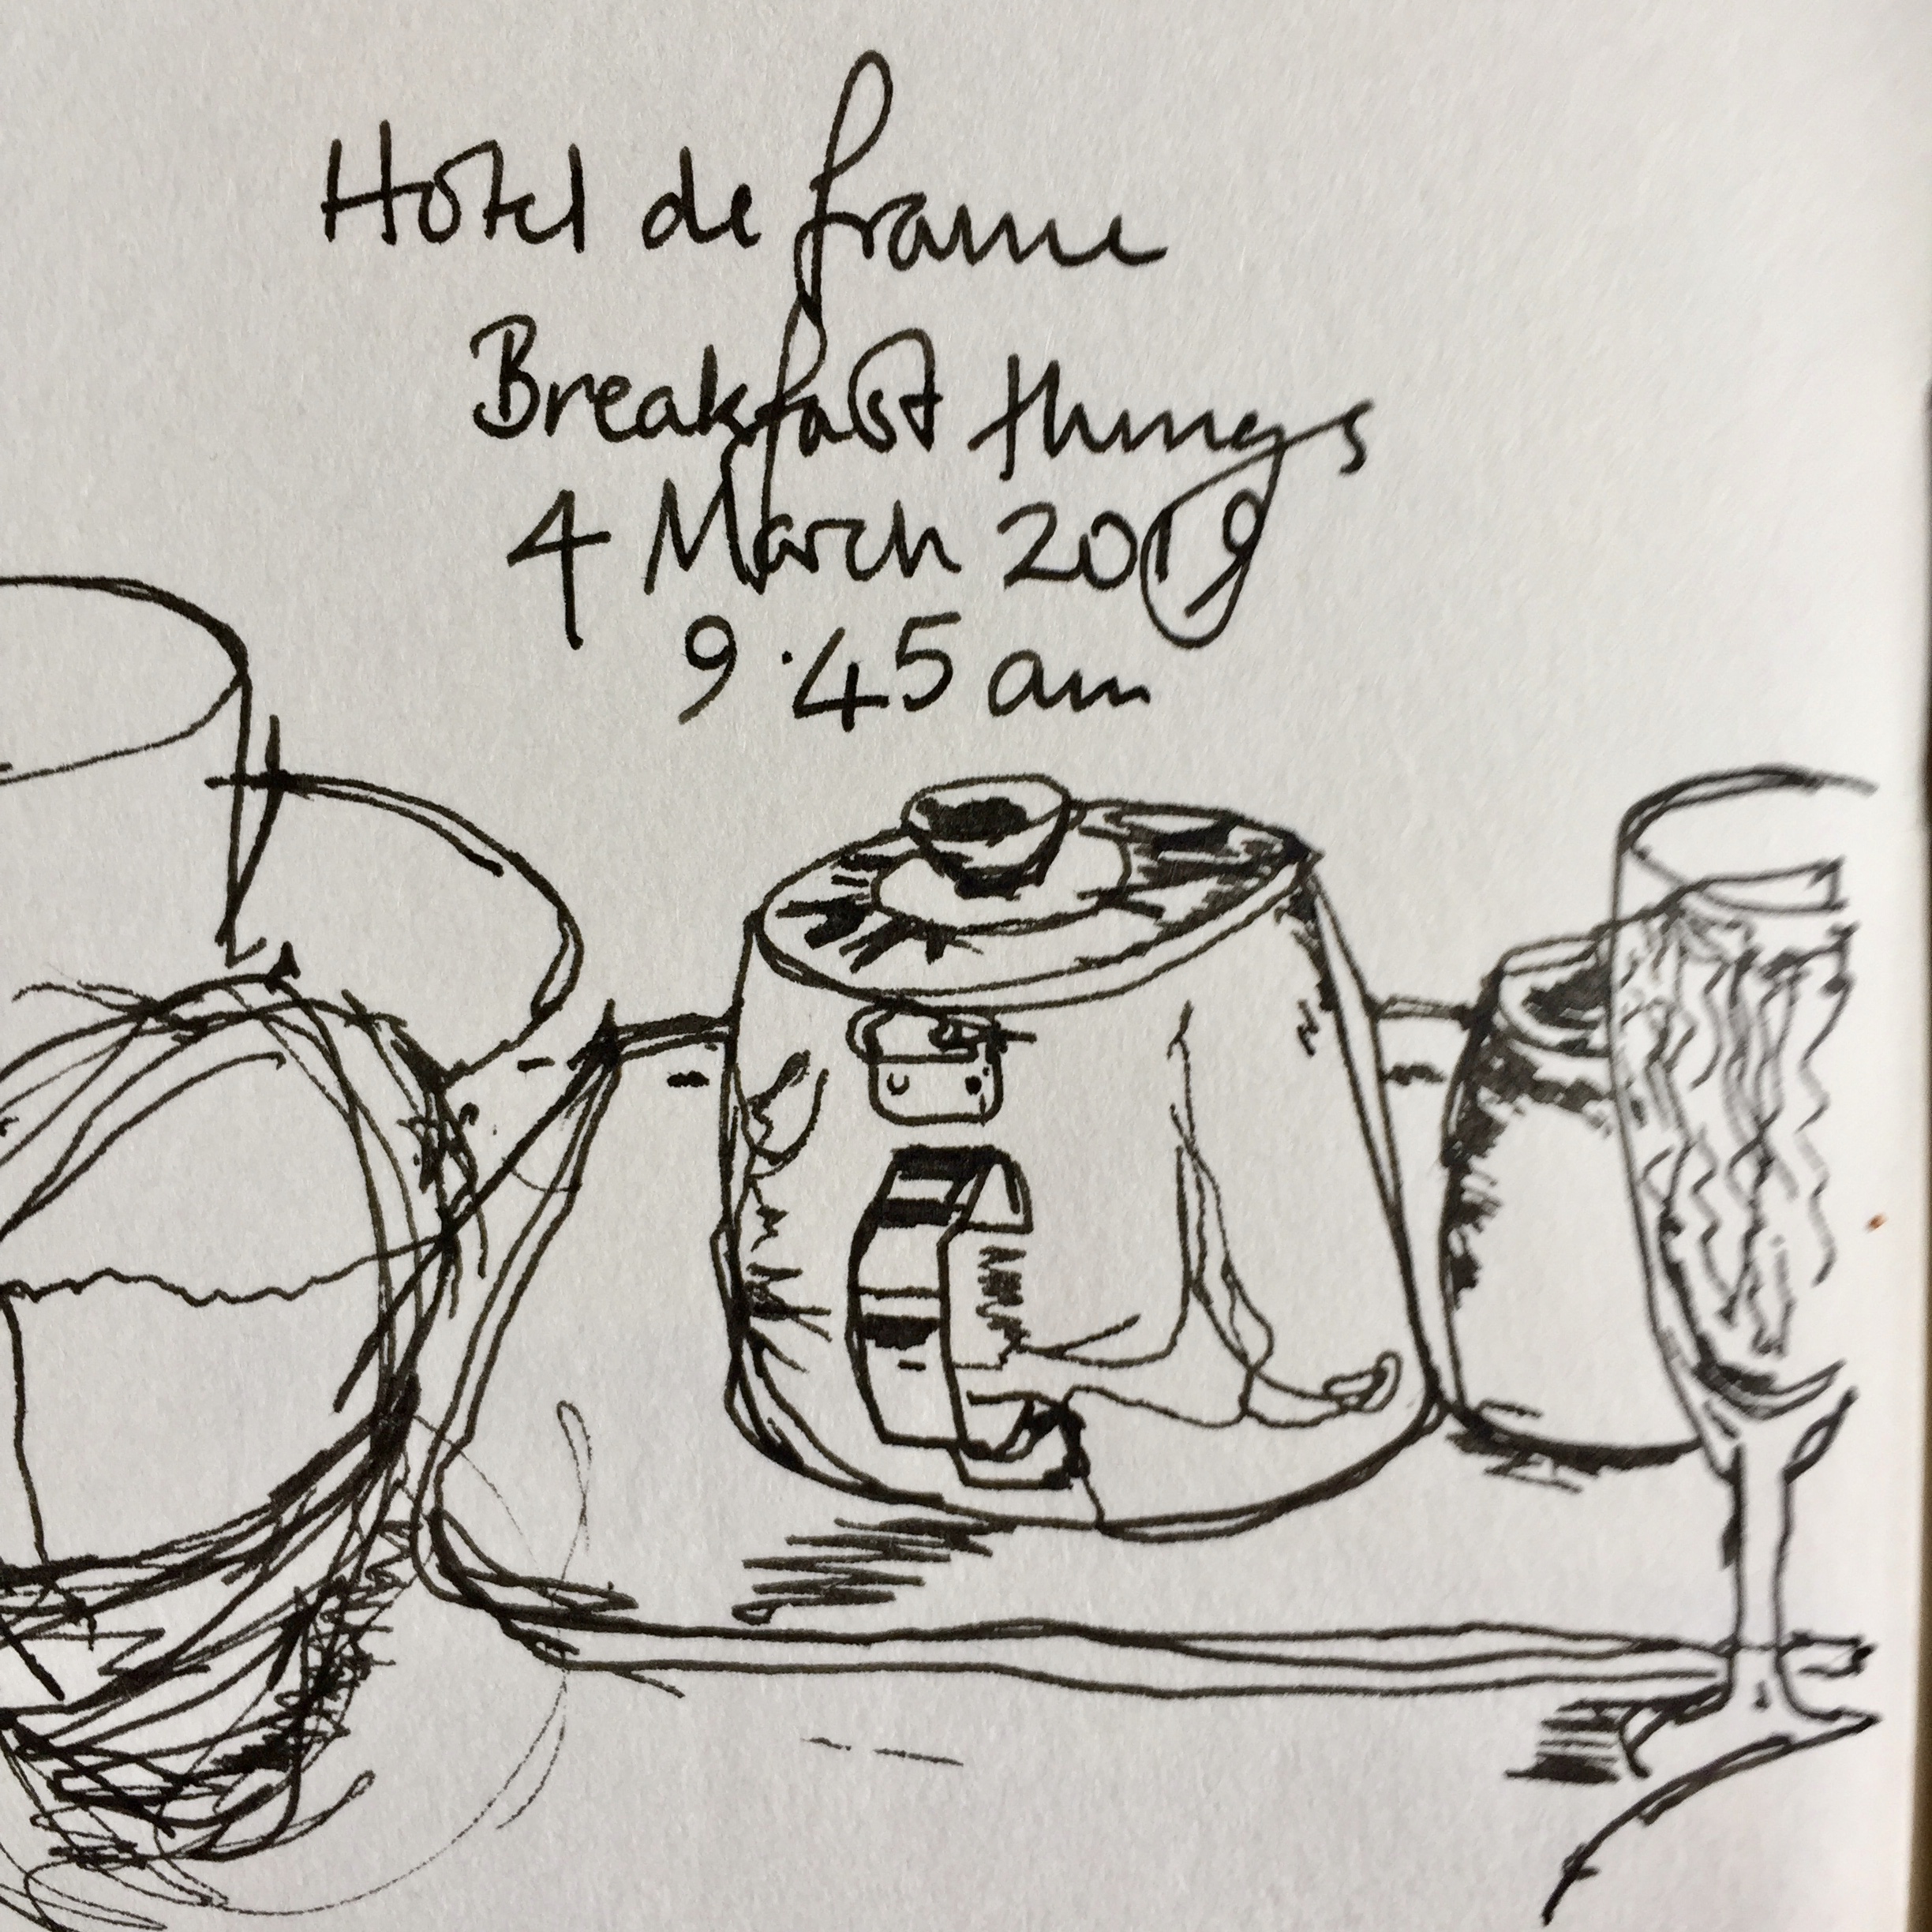 Hotel de france
Breakfast things
4 March 2019
9.45 am